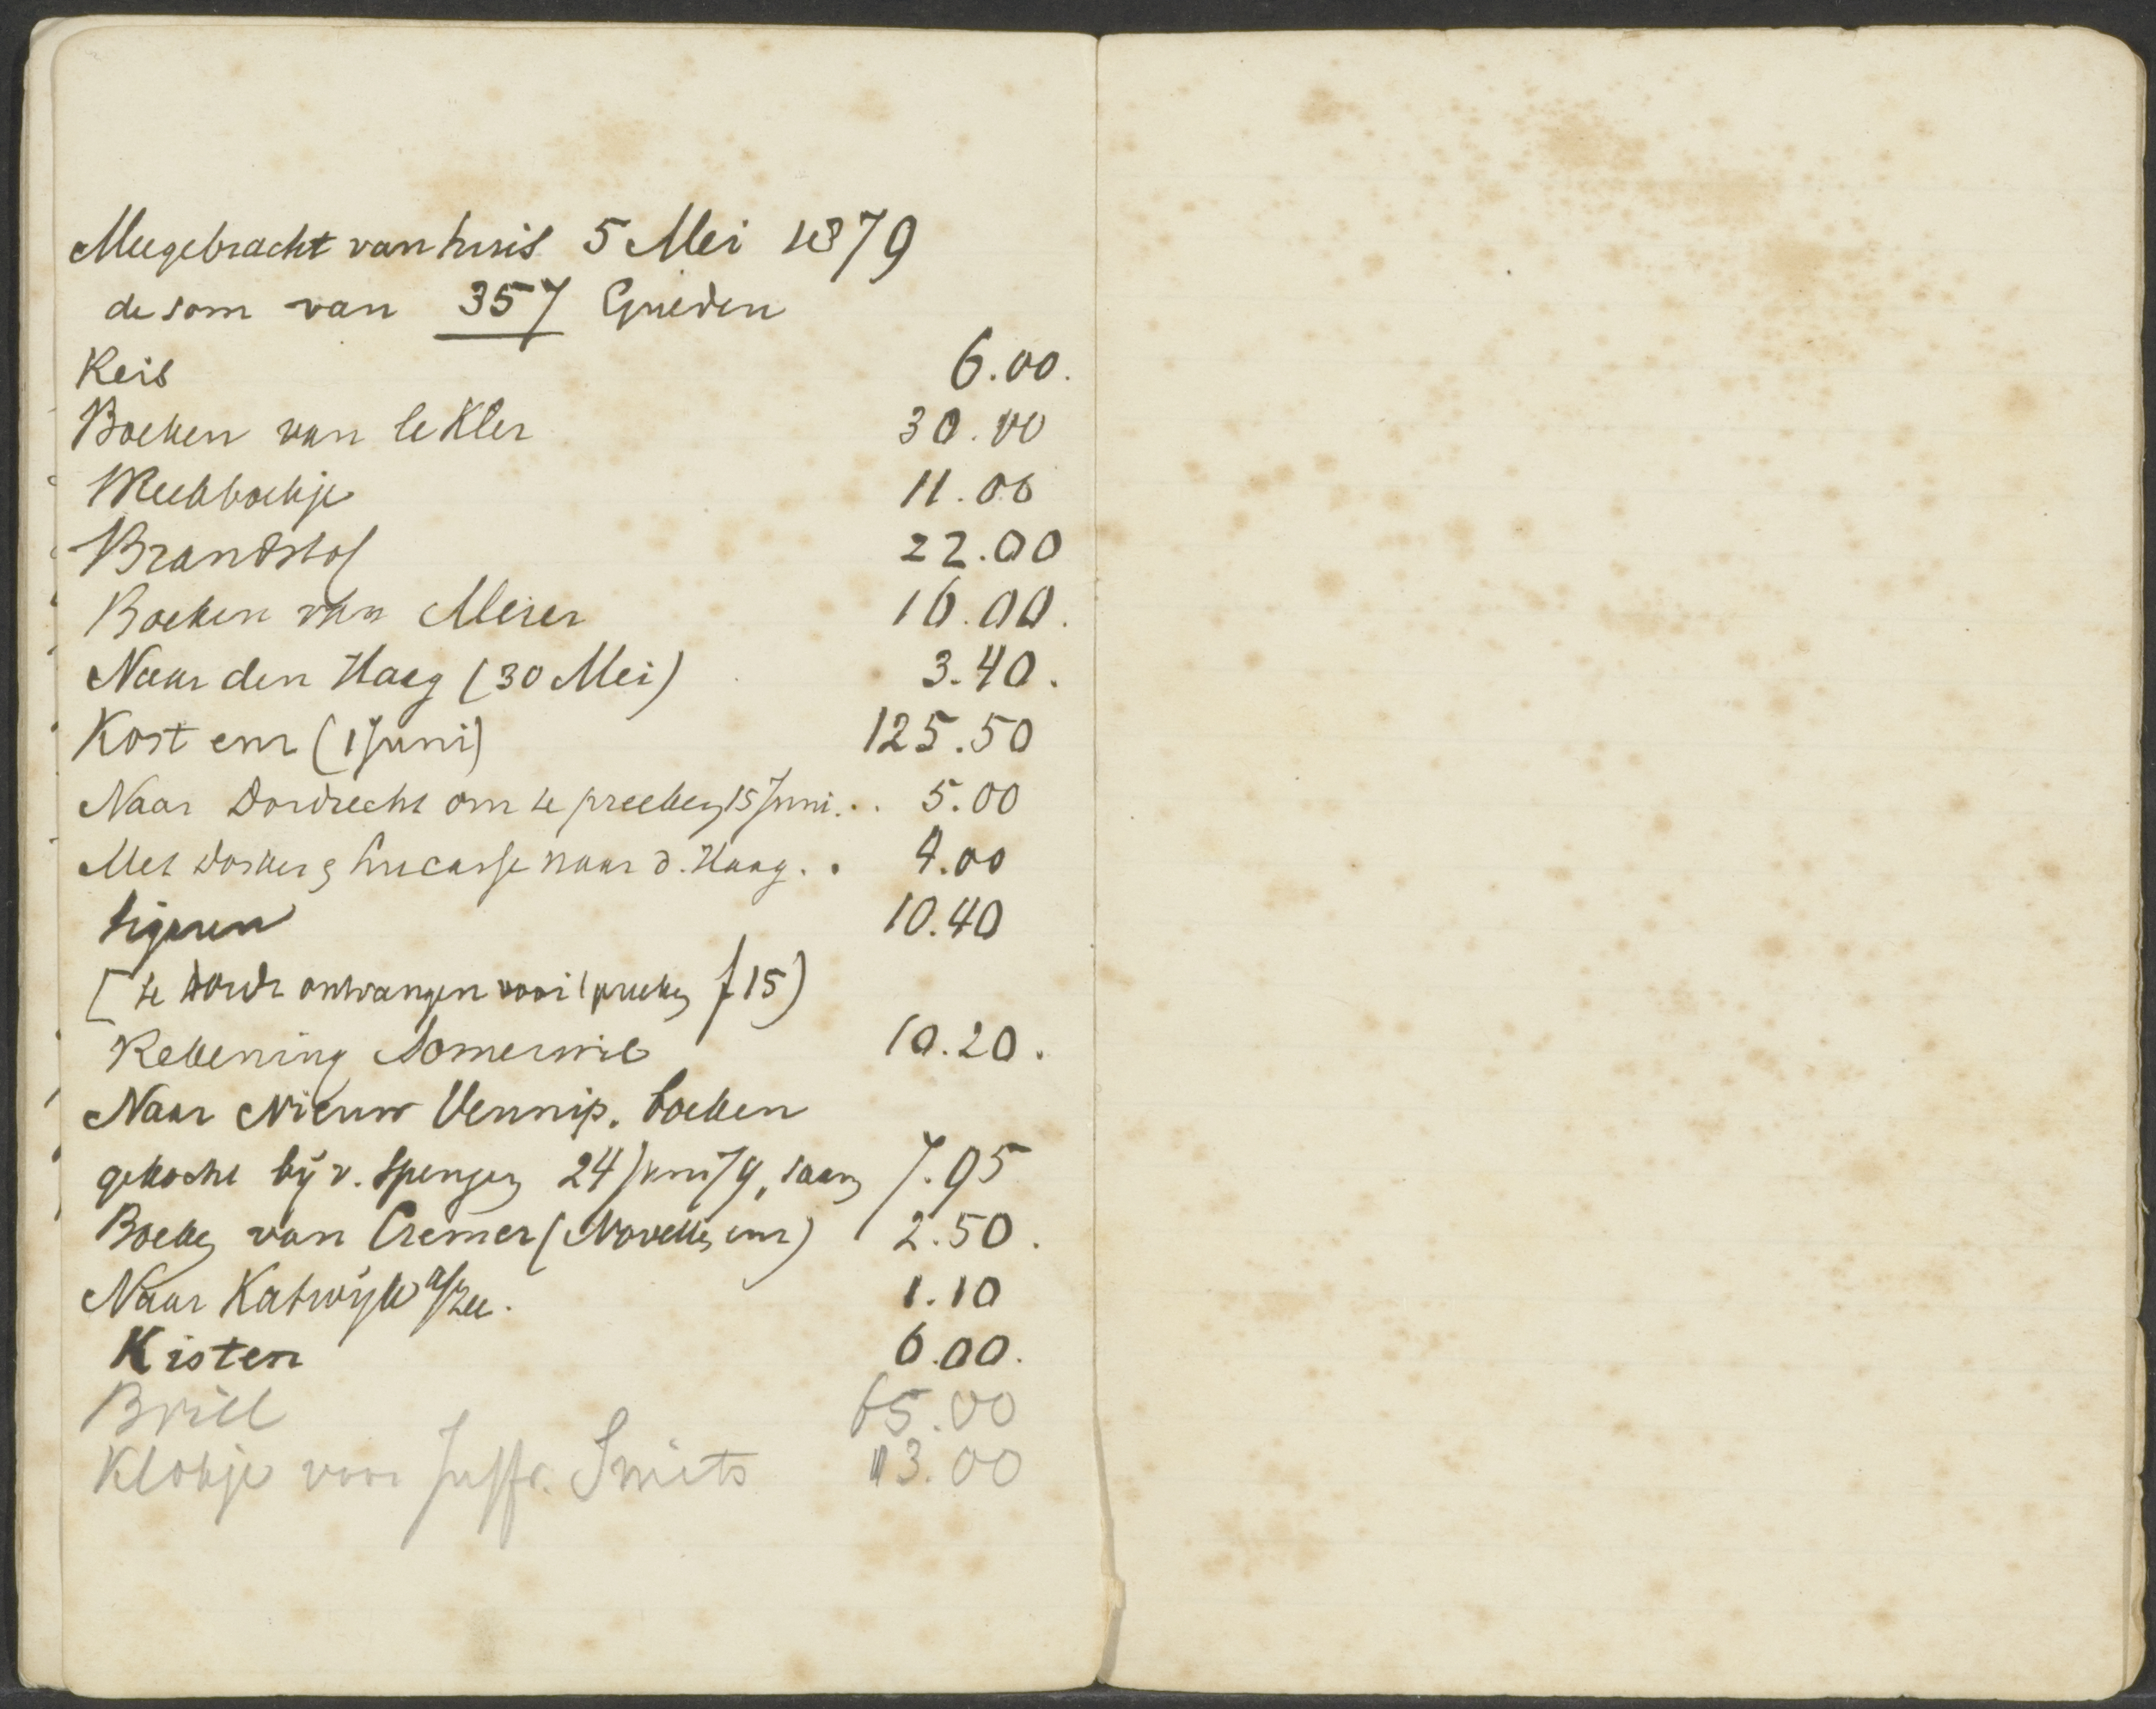 Meegebracht van huis 5 Mei 1879
de som van 357 Gulden
Reis 6.00.
Boeken van le Kler 30.00
Weekboekje 11.00
Brandstof 22.00
Boeken van Meier 16.00.
Naar den Haag (30 Mei) 3.40.
Kost enz (1 Juni) 125.50
Naar Dordrecht om te preeken 15 Juni . . 5.00
Met Dosker & Lucasse naar d. Haag . . 4.00
Sigaren 10.40
[te Dordr ontvangen voor 't preeken f 15)
Rekening Somerwil 10.20.
Naar Nieuw Vennip. boeken
gekocht bij v. Spengen 24 Juni 79, saam 7.95
Boeken van Cremer (Novellen enz) 2.50.
Naar Katwijk a/Zee. 1.10
Kisten 6.00.
Brill 65.00
Klokje voor Juffr. Smits 13.00